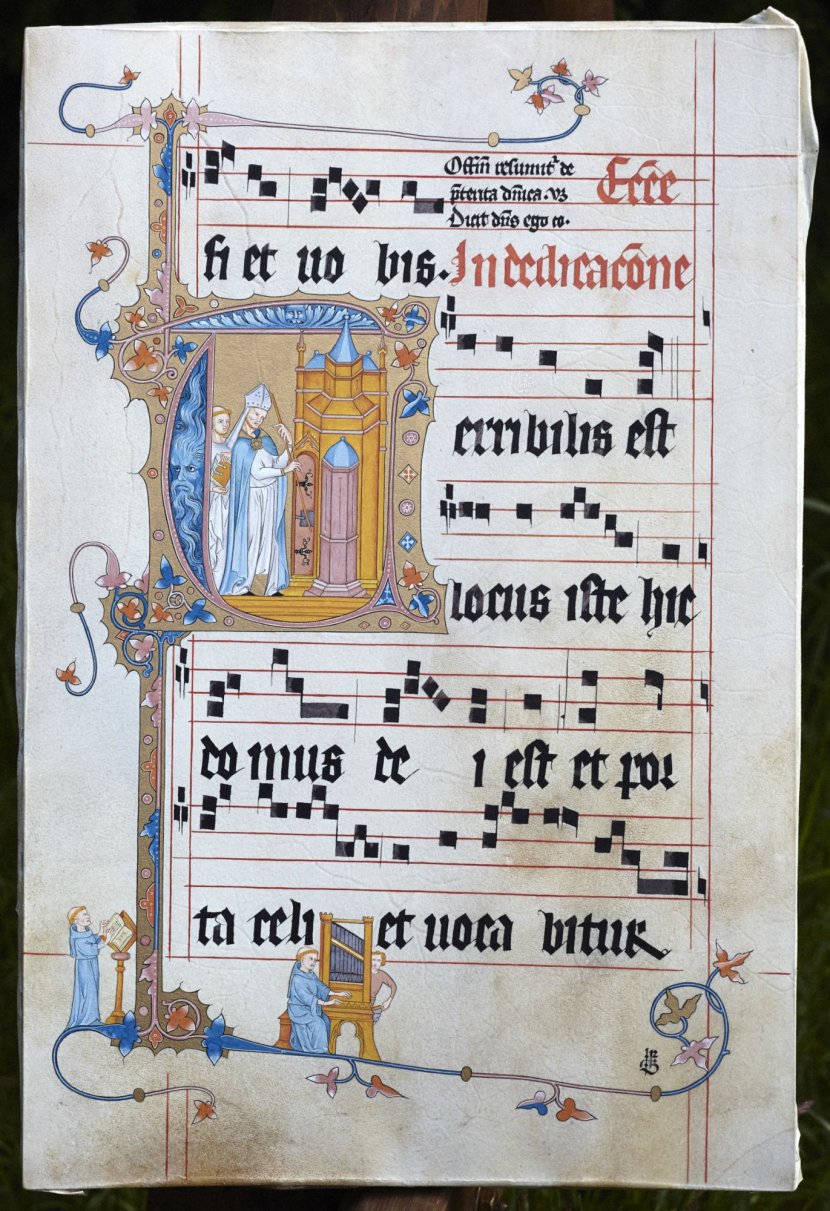 Offm̄ resumit᷑ de
p̄terita dn̄ica. vz
Dicit dn̄s ego co.
Ecc̄e
fi et uo bis.
In dedicacōne
Terribilis est
locus iste hic
domus de i est et por
ta celi et uoca bitur